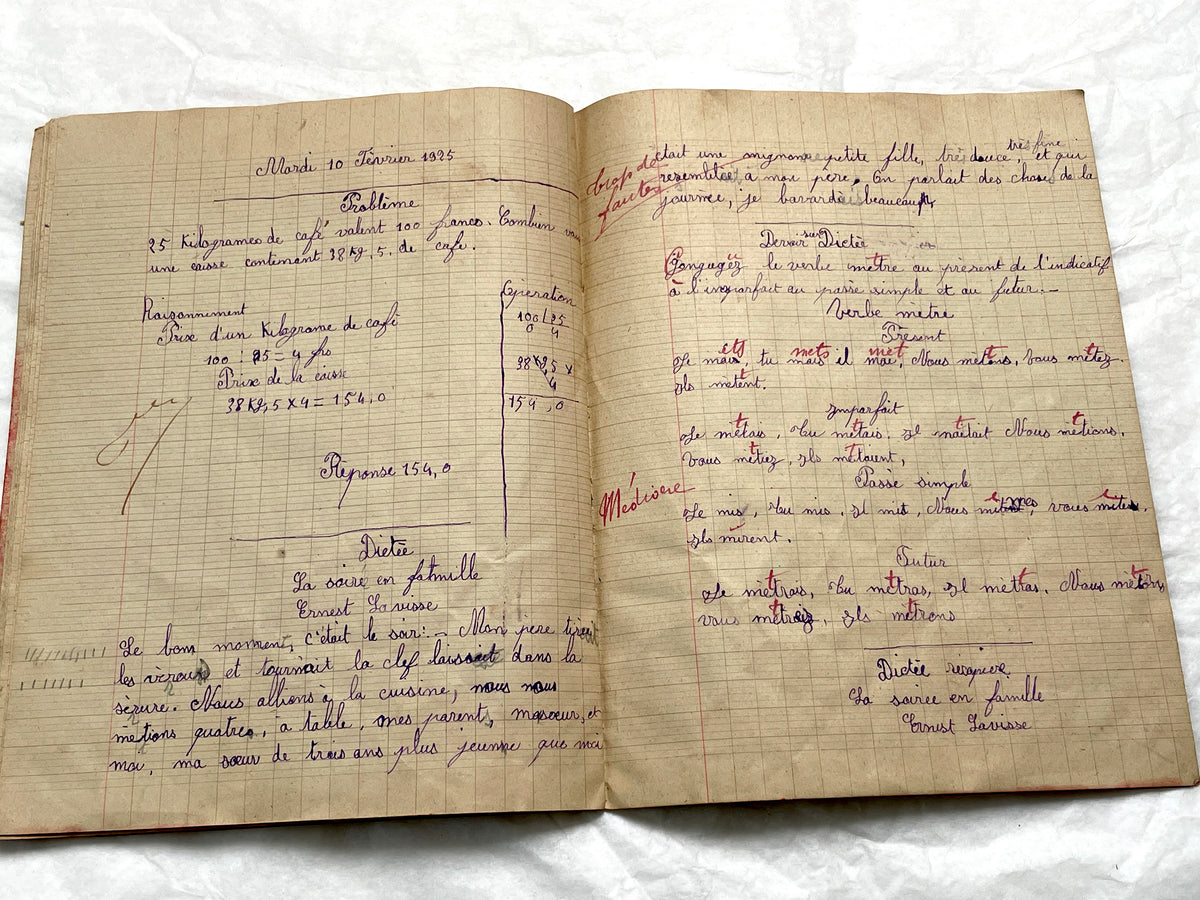 Mardi 10 Février 1925
Problème
25 Kilogrames de café valent 100 francs. Combien vau
une caisse contenant 38 Kg, 5. de café.
Raisonnement
Prix d'un Kilograme de café
100 : 25 = 4 frs
Prix de la caisse
38 Kg, 5 x 4 = 154,0
Opération
100 | 25
0 4
38 Kg, 5 x
4
154,0
Réponse 154,0
Dictée
La soiré en famille
Ernest Lavisse
Le bon moment, c'était le soir: - Mon père tirait
les vérous et tournait la clef laissait dans la
sérure. Nous allions à la cuisine, nous nous
métions quatres, à table, mes parents, masœur, et
moi, ma sœur de trois ans plus jeunne que moi
trop de
fautes
était une mignonne petite fille, très douce, très fine et qui
resemblée à mon père. On parlait des choses de la
journée, je bavardais beaucoup
Devoir sur Dictée
Gonguguez le verbe mètre au présent de l'indicatif
à l'imparfait au passé simple et au futur. -
Verbe mètre
Présent
ets mets met
Je mais, tu mais il mai, Nous metons, Vous métez.
Ils metent.
Imparfait
Je métais, Tu métais. Il métait Nous métions,
Vous métiez, Ils métaient,
Passé simple
Médiocre
Je mis, Tu mis, Il mit, Nous mîmes, vous mîtes,
Ils mirent.
Futur
Je mètrais, Tu métras, Il mèttas. Nous métrons,
vous métrez, Ils métrons
Dictée
La soiree en famille
Ernest Lavisse